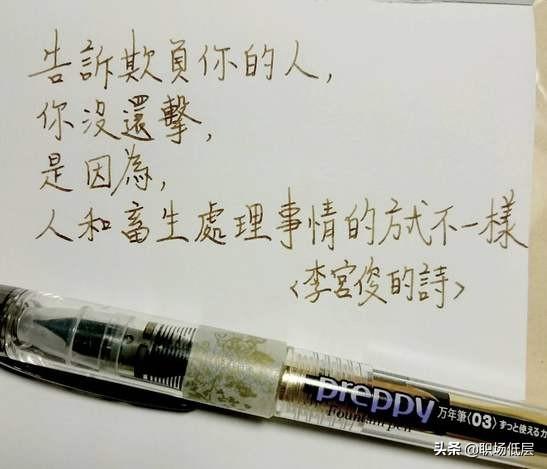 告訴欺負你的人，
你沒還擊，
是因為，
人和畜生處理事情的方式不一樣
〈李宮俊的詩〉
preppy
Fountain pen
万年筆〈03〉ずっと使えるカ
头条 @职场低层